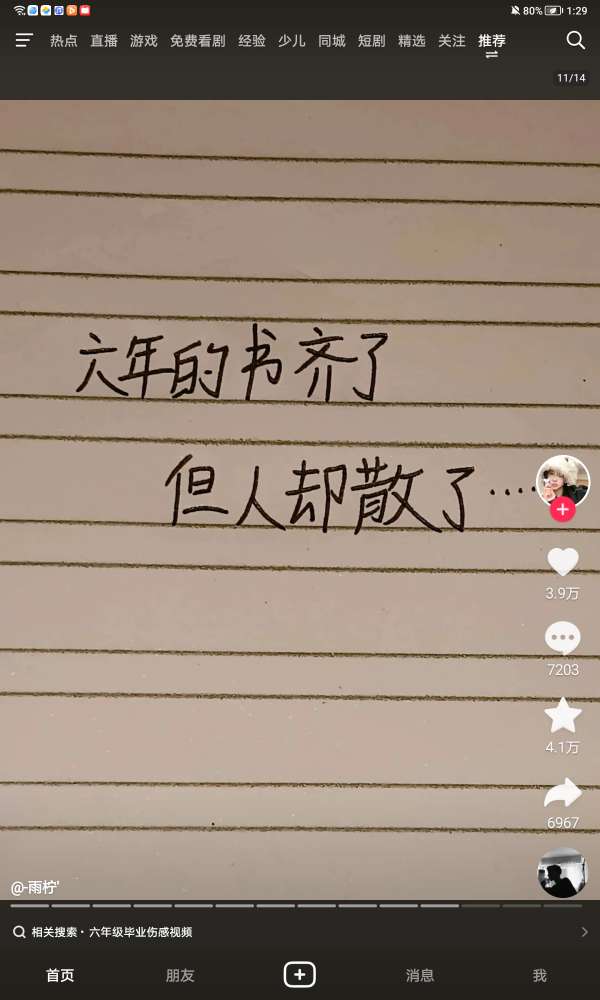 80% 1:29
热点 直播 游戏 免费看剧 经验 少儿 同城 短剧 精选 关注 推荐
11/14
六年的书齐了
但人却散了……
3.9万
7203
4.1万
6967
@-雨柠'
相关搜索 · 六年级毕业伤感视频
首页 朋友 消息 我